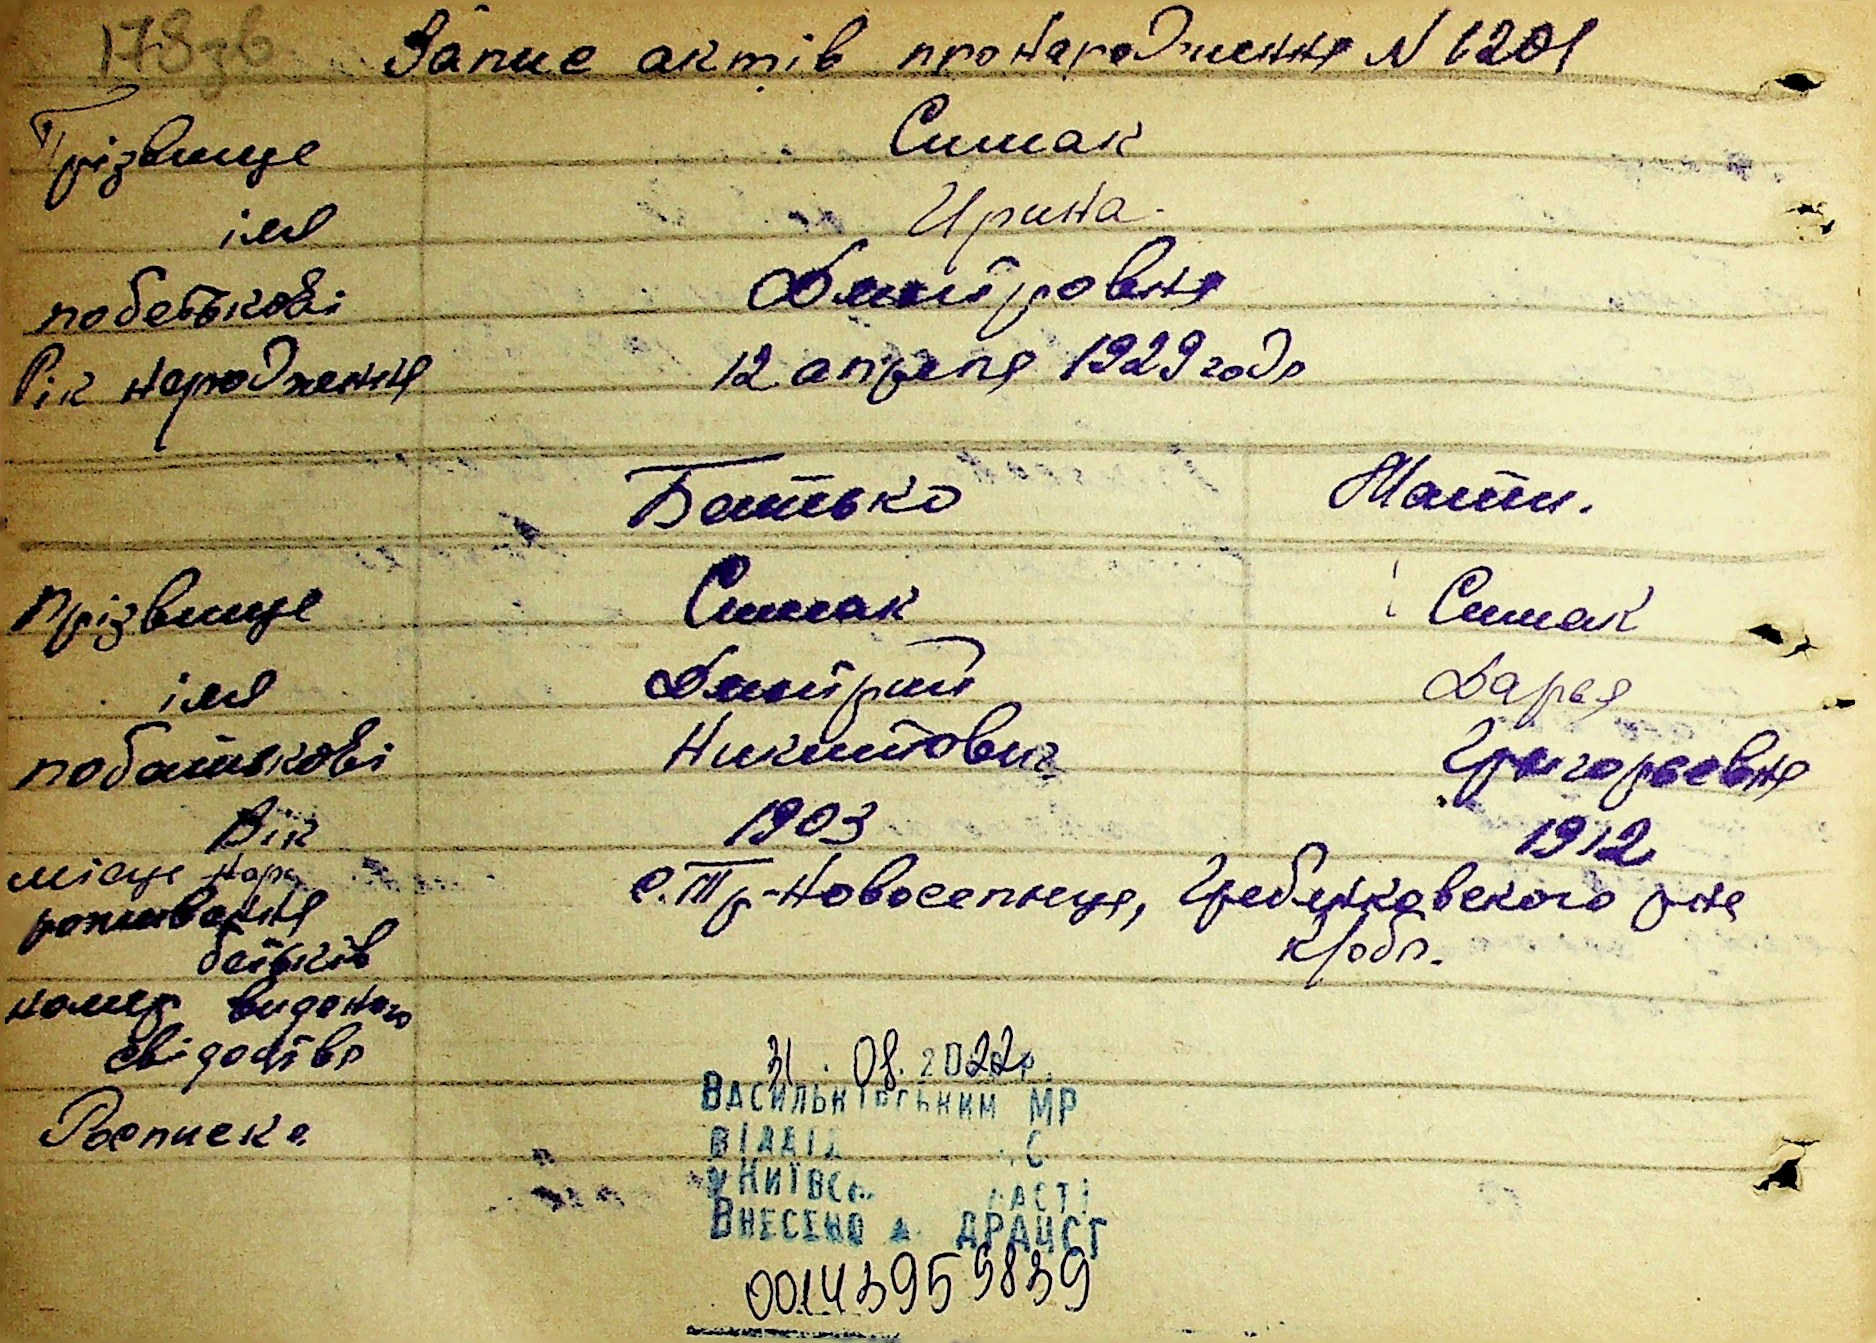 178зв
Запис актів про народження N 1201
Прізвище Симак
імя Ирина.
побатькові Дмитровна
Рік народження 12 апреля 1929 года
Батько Мати.
Прізвище Симак Симак
імя Дмитрий Дарья
побатькові Никитович Григорьевна
Вік 1903 1912
місце
с. Тр-Новоселица, Гребенковского р-на
проживання
К/обл.
батьків
номер виданого
свідоцтва
31.08.2022р.
Васильківським МР
Росписка
у Київс
Внесено ДРАЦСГ
00143959839